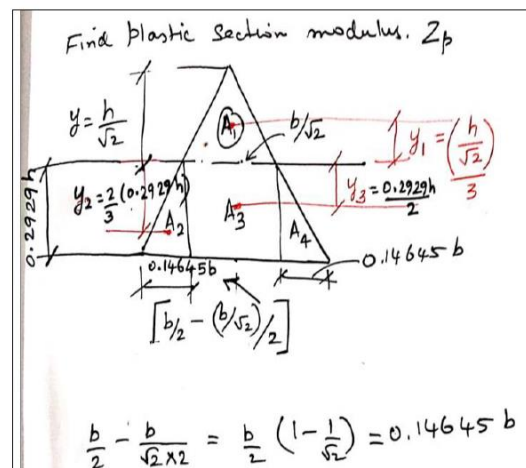 Find plastic section modulus. Zp
y = h/√2
A₁
b/√2
y₁ = (h/√2)/3
0.2929h
y₂ = 2/3 (0.2929h)
y₃ = 0.2929h/2
A₂
A₃
A₄
0.14645b
0.14645 b
[b/2 - (b/√2)/2]
b/2 - b/√2×2 = b/2 (1 - 1/√2) = 0.14645 b